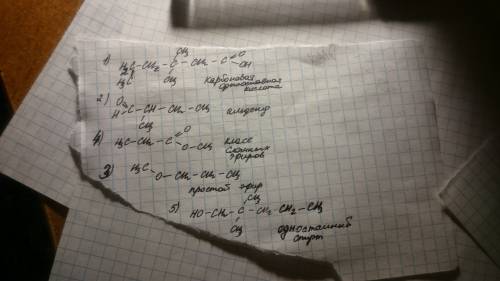 CH₃
1) H₂C-CH₂-C-CH₂-C=O
OH
H₃C CH₃ карбоновая
одноосновная
кислота
2) O
H-C-CH-CH₂-CH₃ альдегид
CH₃
4) H₃C-CH₂-C=O класс
O-CH₃ сложных
эфиров
3) H₃C
O-CH₂-CH₂-CH₃
простой эфир
5) CH₃
HO-CH₂-C-CH₂-CH₂-CH₃
CH₃ одноатомный
спирт